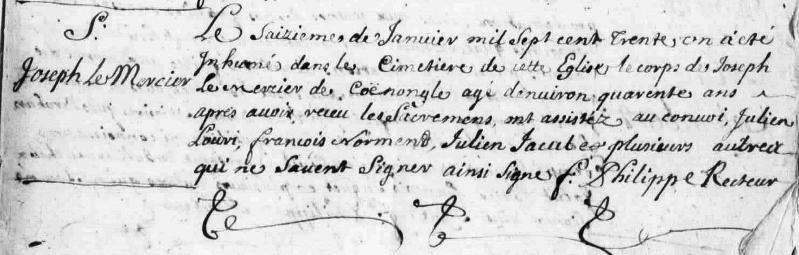 S.
Joseph Le Mercier
Le Saiziemes de Janvier mil Sept cent Trente, on a êté
Inhumé dans le Cimetiere de cette Eglise le corps de Joseph
Le mercier de Coënongle agé d'environ quarente ans
apres avoir receu les Sacremens, ont assistéz au convoi, Julien
Louri, francois Normend, Julien Jacut et plusieurs autres
qui ne Savent Signer ainsi signe f. Philippe Recteur